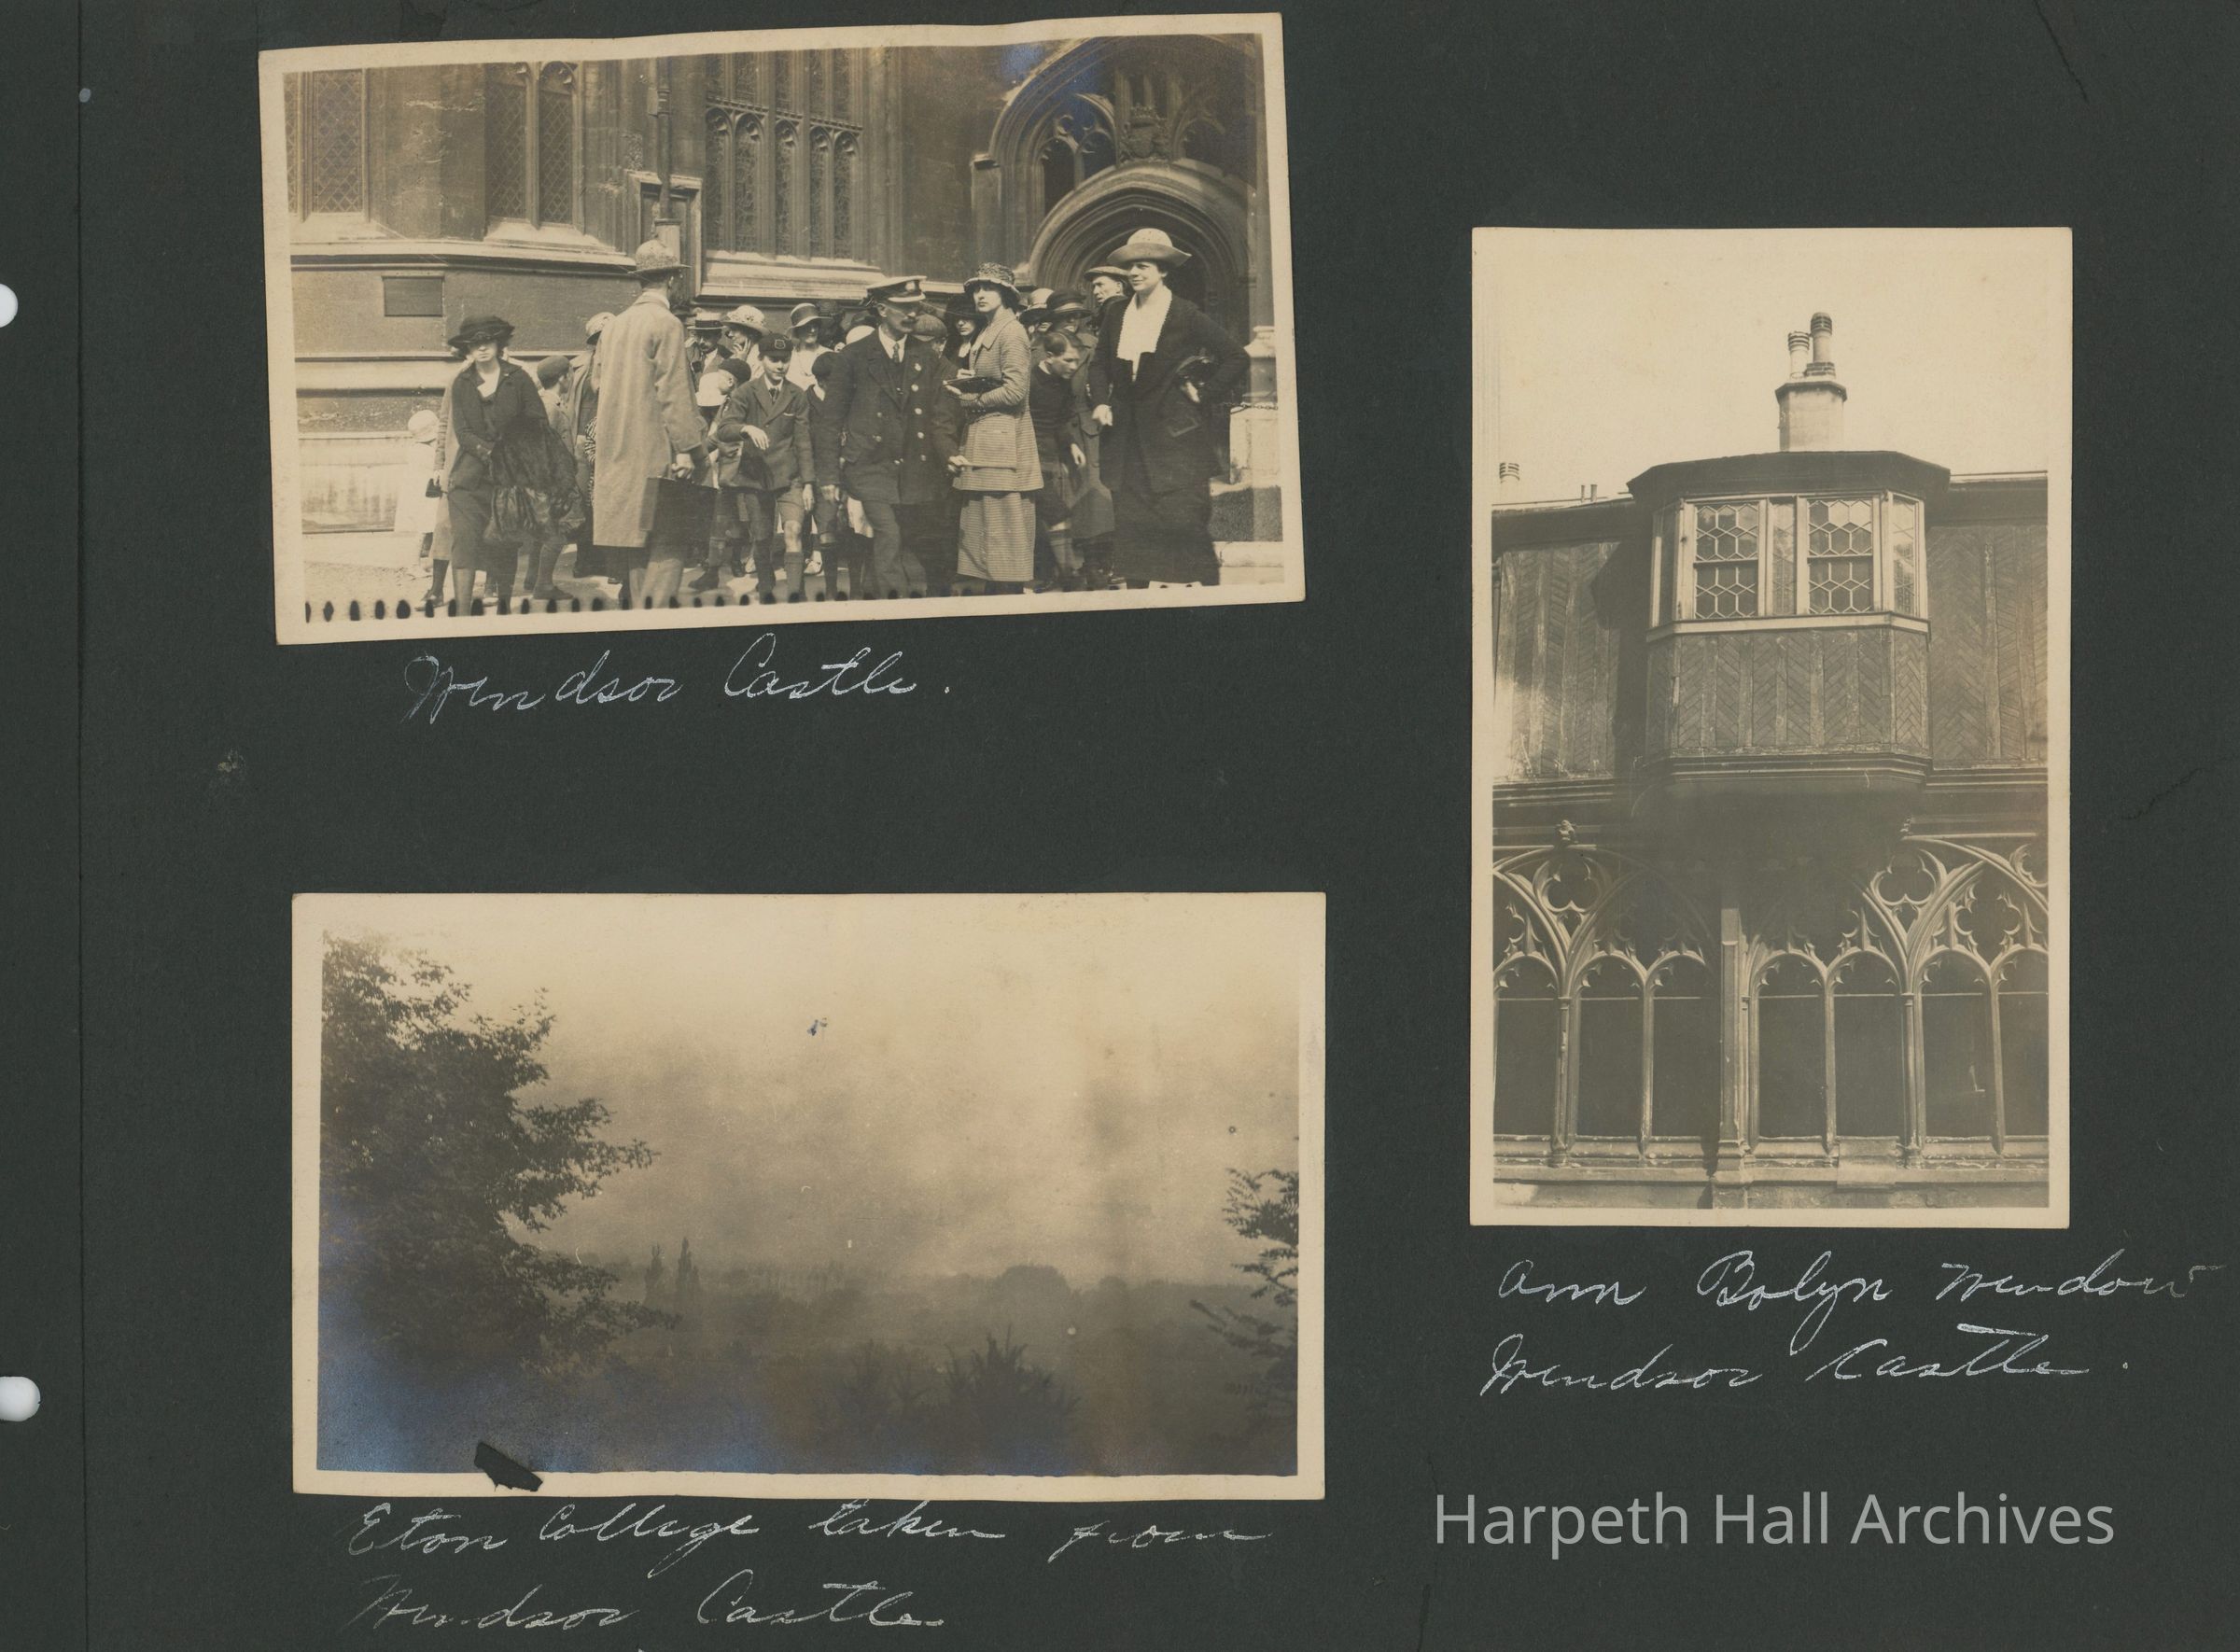 Windsor Castle.
Eton College taken from
Windsor Castle
Ann Bolyn Window
Windsor Castle.
Harpeth Hall Archives